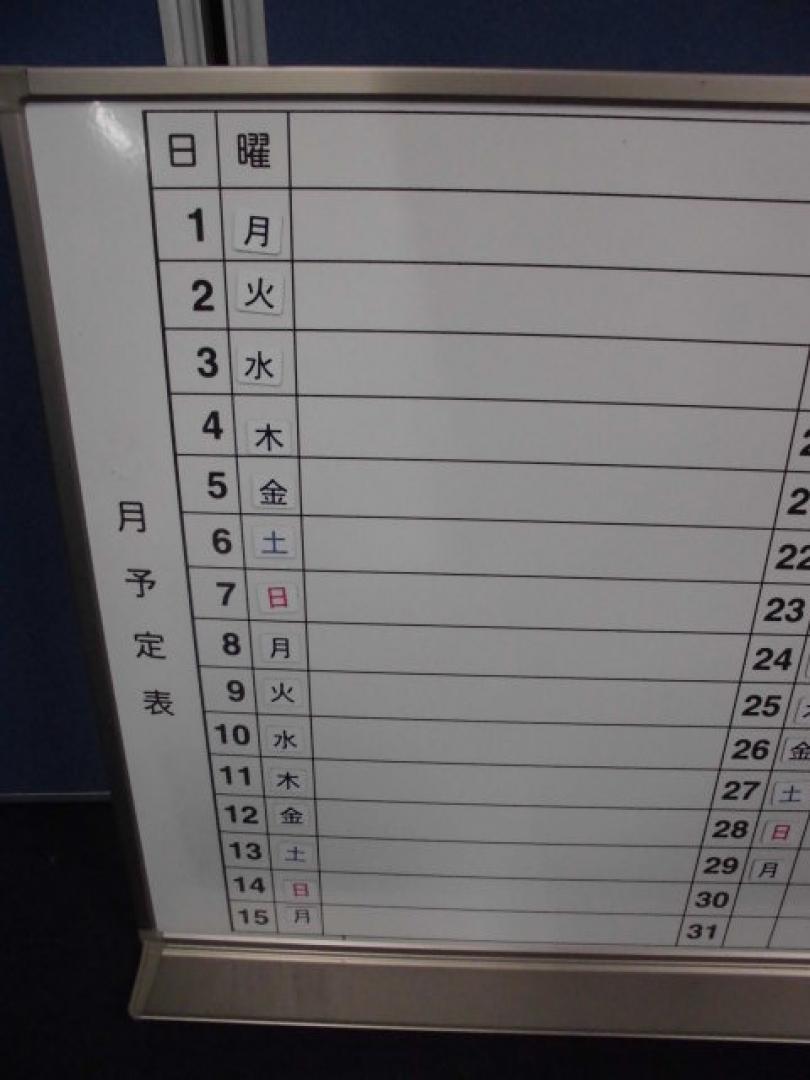 月予定表
日 曜
1 月
2 火
3 水
4 木
5 金
6 土
7 日
8 月
9 火
10 水
11 木
12 金
13 土
14 日
15 月
22
23
24
25
26 金
27 土
28 日
29 月
30
31